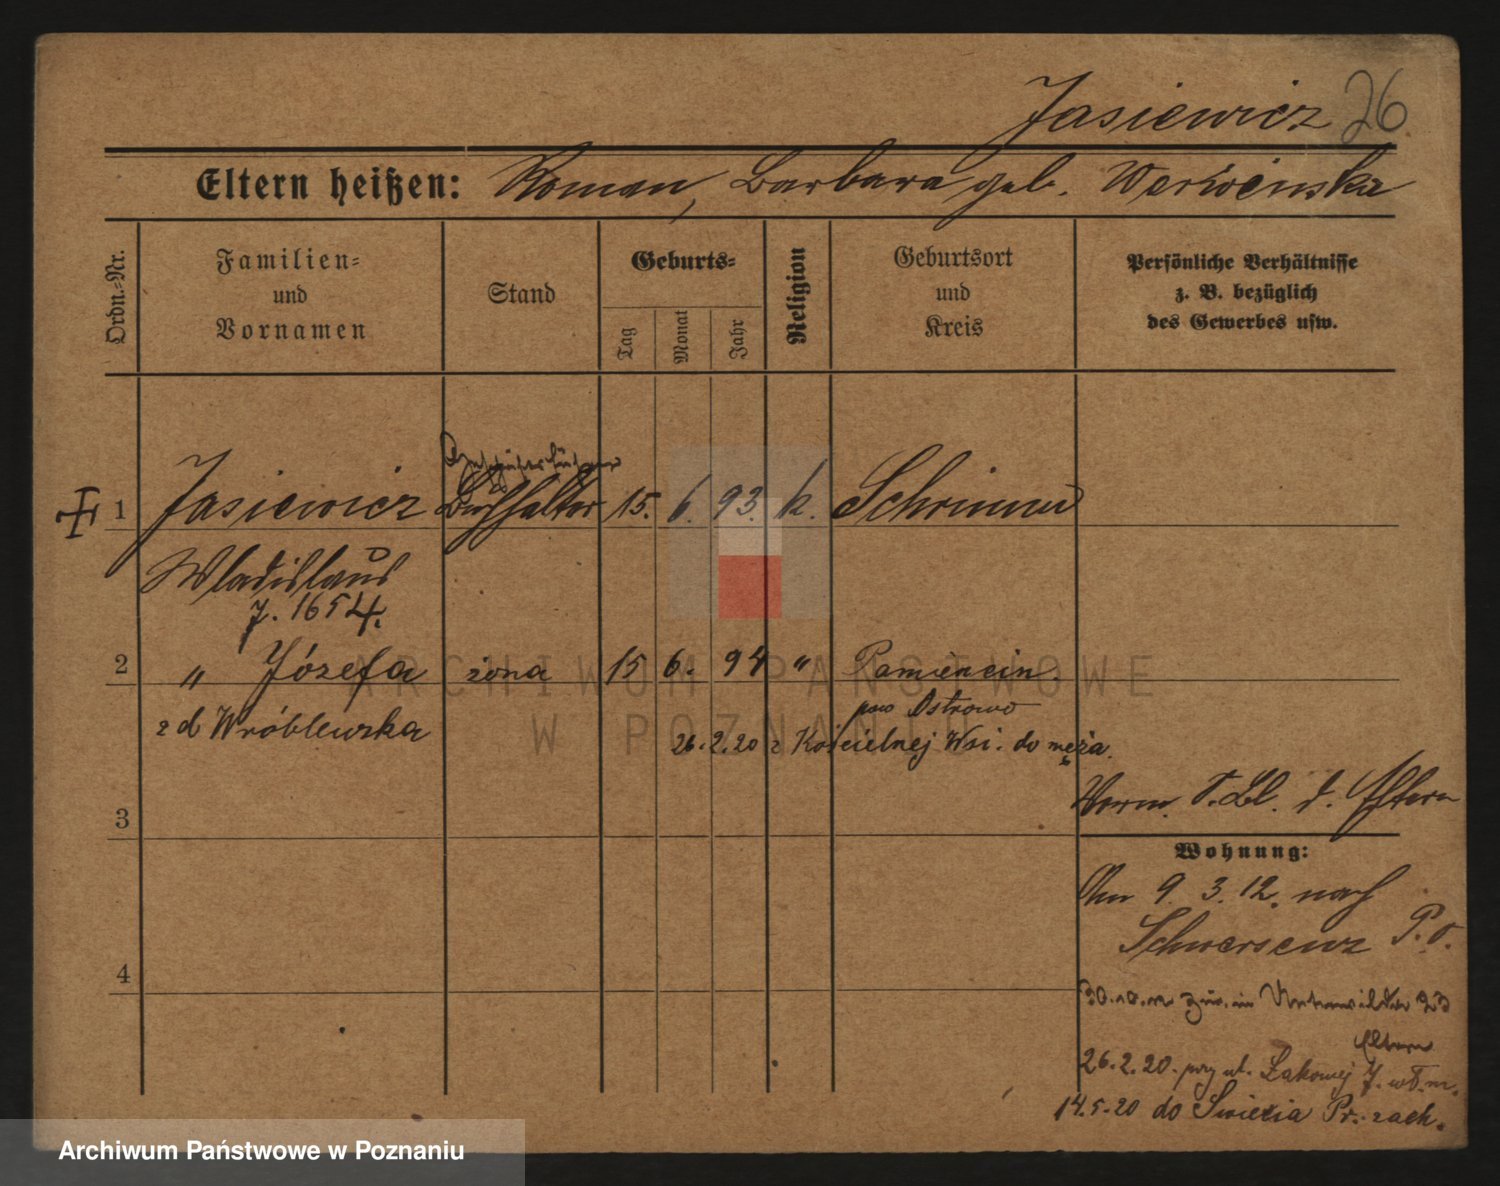 Jasiewicz 26
Eltern heißen: Roman, Barbara geb.
Ordn.-Nr.
Familien-
und
Vornamen
Stand
Geburts-
Tag
Monat
Jahr
Religion
Geburtsort
und
Kreis
Persönliche Verhältnisse
z. B. bezüglich
des Gewerbes usw.
1 Jasiewicz Buchhalter 15. 6. 93. k. Schrimm
Wladislaus
J. 1654.
2 " Józefa żona 15 6. 94 " Pamiencin
z d Wróblewska
pow Ostrowo
26.2.20 z Kościelnej Wsi. do męża.
3
Vorm. s. Bl. d. Eltern
Wohnung:
Am 9. 3. 12. nach
Schwersenz P. O.
4
30.10.12 zur. in 23
Eltern
26.2.20. przy ul. Łąkowej 7. wł. m.
14.5.20 do Pr. zach.
ARCHIWUM PAŃSTWOWE
W POZNANIU
Archiwum Państwowe w Poznaniu